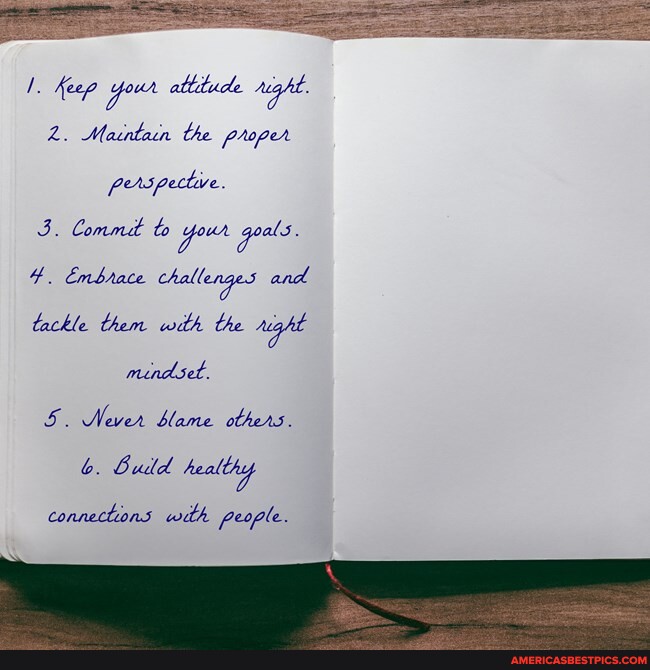 1. Keep your attitude right.
2. Maintain the proper
perspective.
3. Commit to your goals.
4. Embrace challenges and
tackle them with the right
mindset.
5. Never blame others.
6. Build healthy
connections with people.
AMERICASBESTPICS.COM